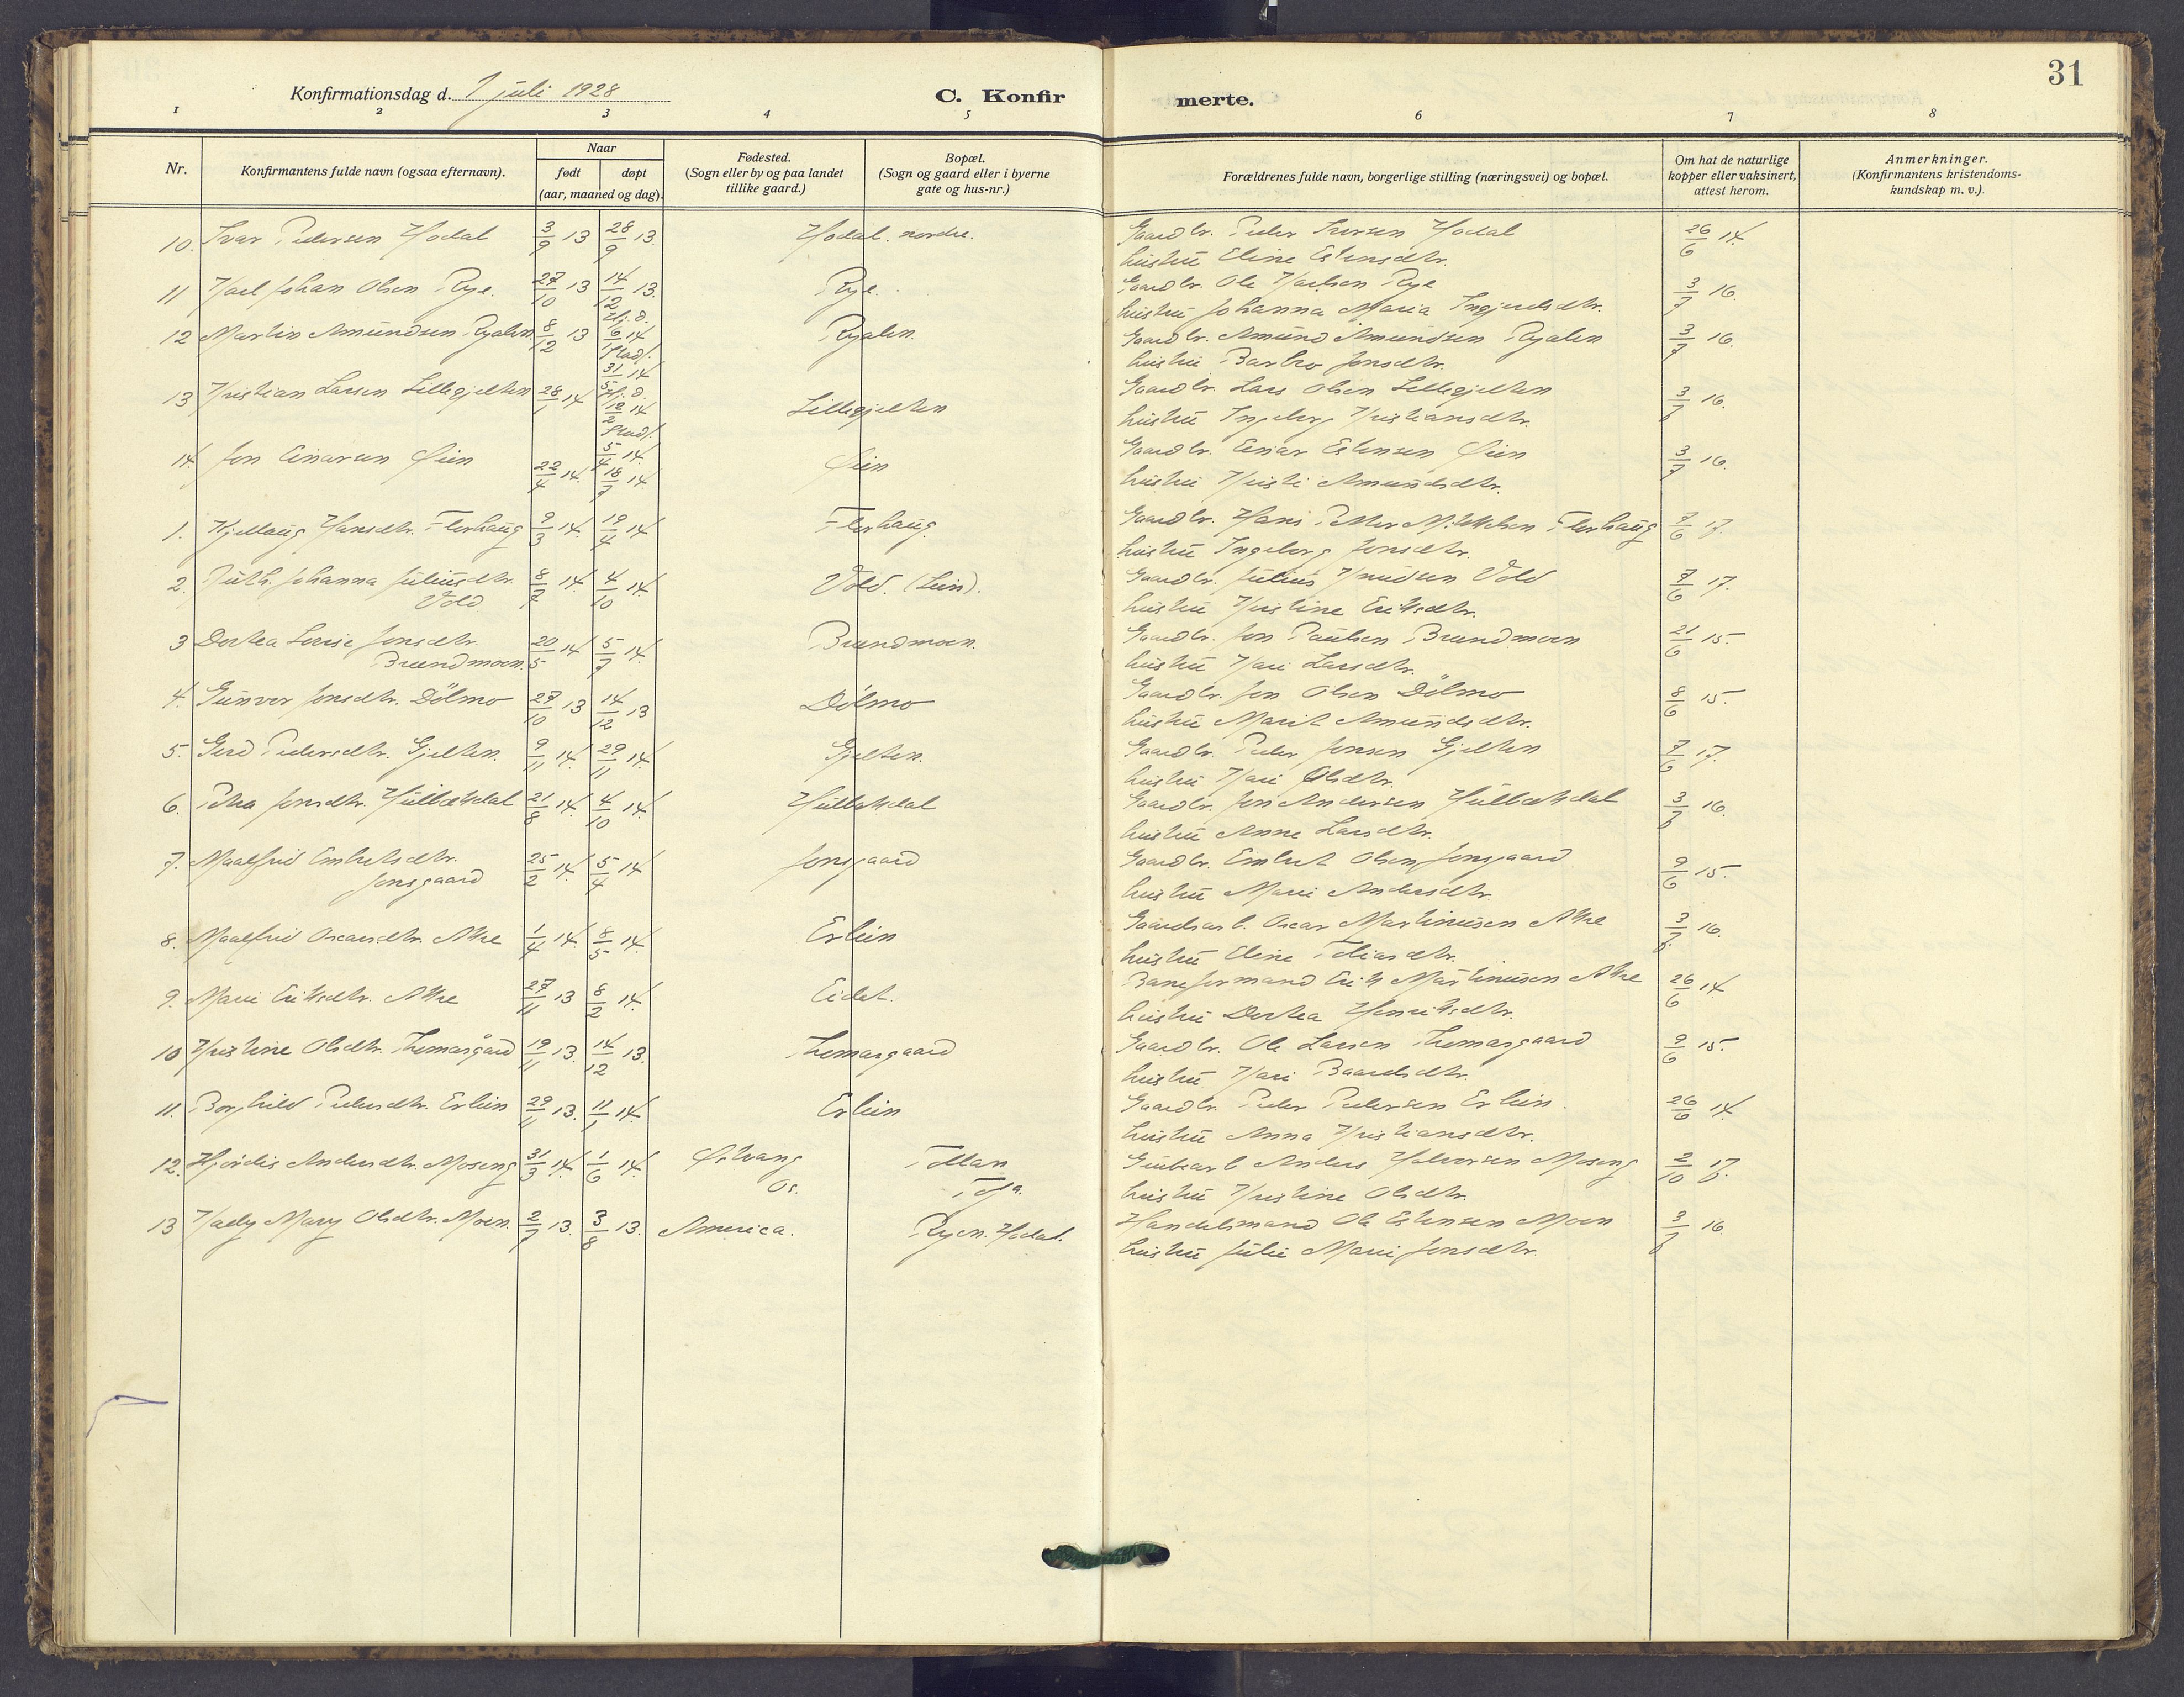 31
Konfirmationsdag d. 1 juli 1928
C. Konfir
merte.
1 2 3 4 5 6 7 8
Nr.
Konfirmantens fulde navn (ogsaa efternavn).
Naar
født
døpt
(aar, maaned og dag).
Fødested.
(Sogn eller by og paa landet
tillike gaard.)
Bopæl.
(Sogn og gaard eller i byerne
gate og hus-nr.)
Forældrenes fulde navn, borgerlige stilling (næringsvei) og bopæl.
Om hat de naturlige
kopper eller vaksinert,
attest herom.
Anmerkninger.
(Konfirmantens kristendoms-
kundskap m. v.).
10. Ivar Pedersen Hodal 3/9 13 28/9 13. Hodal nordre. Gaardbr. Peder Iversen Hodal 26/6 14.
hustru Eline Estensdtr.
11 Karl Johan Olsen Rye. 27/10 13 14/12 13. Rye. Gaardbr. Ole Karlsen Rye 3/7 16.
hustru Johanna Maria Ingjerdsdtr.
12 Martin Amundsen Ryalen 8/12 13 Hj. d. 6/1 14 Stadf. 31/5 14 Ryalen. Gaardbr. Amund Amundsen Ryalen 3/7 16.
hustru Barbro Jonsdtr.
13 Kristian Larsen Lillegjelten 28/1 14 Hj. d. 12/2 14 Stadf. 5/4 14. Lillegjelten Gaardbr. Lars Olsen Lillegjelten 3/7 16.
hustru Ingeborg Kristiansdtr.
14. Jon Einarsen Øien 22/4 14. 18/7 14. Øien Gaardbr. Einar Estensen Øien 3/7 16.
hustru Kristi Amundsdtr.
1. Kjellaug Hansdtr. Elerhaug 9/3 14. 19/4 14 Elerhaug. Gaardbr. Hans Petter Mikkelsen Elerhaug 7/6 17.
hustru Ingeborg Jonsdtr.
2. Ruth Johanna Juliusdtr. 8/7 14. 4/10 14. Vold. (Lien). Gaardbr. Julius Knudsen Vold 7/6 17.
Vold hustru Kristine Eriksdtr.
3 Dortea Louise Jonsdtr. 20/5 14 5/7 14. Brændmoen. Gaardbr. Jon Paulsen Brændmoen 21/6 15.
Brændmoen. hustru Kari Larsdtr.
4. Gunvor Jonsdtr. Dölmo 27/10 13 14/12 13 Dölmo Gaardbr. Jon Olsen Dölmo 8/6 15.
hustru Marit Amundsdtr.
5. Gerd Pedersdtr. Gjelten. 9/11 14. 29/11 14. Gjelten. Gaardbr. Peder Jonsen Gjelten 7/6 17.
hustru Kari Olsdtr.
6. Petra Jonsdtr. Hulbækdal 21/8 14. 4/10 14. Hulbækdal Gaardbr. Jon Andersen Hulbækdal 3/7 16.
hustru Anne Larsdtr.
7. Maalfrid Embretsdtr. 25/2 14. 5/4 14 Jonsgaard Gaardbr. Embret Olsen Jonsgaard 9/6 15.
Jonsgaard hustru Marie Andersdtr.
8. Maalfrid Oscarsdtr. Akre 1/4 14. 8/5 14. Erlien Gaardsarb. Oscar Martinusen Akre 3/7 16.
hustru Eline Eliasdtr.
9. Marie Eriksdtr. Akre 27/11 13 8/2 14. Eidet. Baneformand Erik Martinusen Akre 26/6 14
hustru Dortea Henriksdtr.
10 Kristine Olsdtr. Thomasgård 19/11 13. 14/12 13. Thomasgaard Gaardbr. Ole Larsen Thomasgaard 9/6 15.
hustru Kari Baardsdtr.
11. Borghild Pedersdtr. Erlien 29/11 13. 11/1 14. Erlien Gaardbr. Peder Pedersen Erlien. 26/6 14.
hustru Anna Kristiansdtr.
12. Hjördis Andersdtr. Moseng 31/3 14. 1/6 14. Østvang Os. Tollan Tolga. Grubearb Anders Halvorsen Moseng 2/10 17.
hustru Kristine Olsdtr.
13 Mary Olsdtr. Moen. 2/7 13. 3/8 13. America. Ryen. Hodal. Handelsmand Ole Estensen Moen 3/7 16.
hustru Julie Marie Jonsdtr.